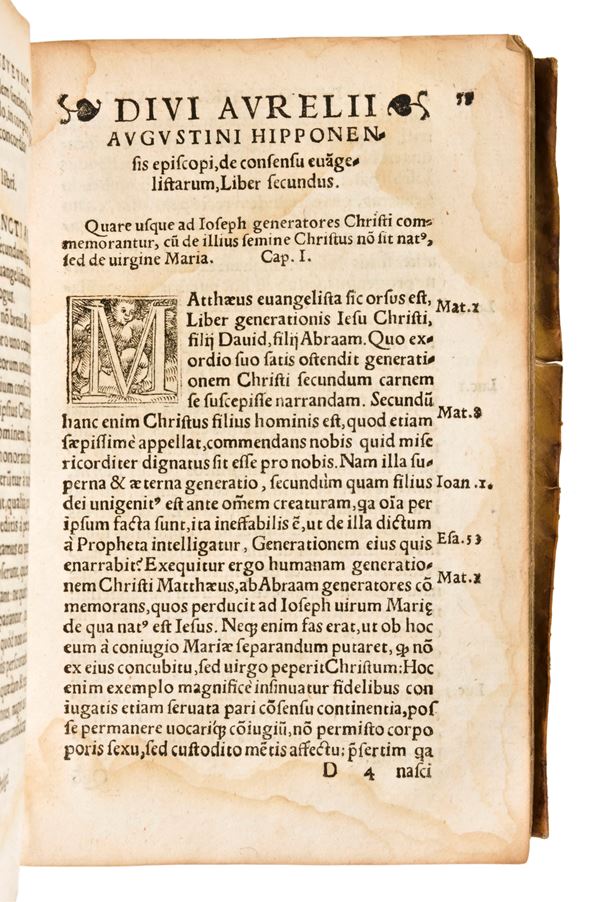 DIVI AVRELII
AVGVSTINI HIPPONEN-
sis episcopi, de consensu euãge-
listarum, Liber secundus.
Quare usque ad Ioseph generatores Christi com-
memorantur, cũ de illius semine Christus nõ sit natꝰ,
sed de uirgine Maria. Cap. I.
MAtthæus euangelista sic orsus est, Mat.1
Liber generationis Iesu Christi,
filij Dauid, filij Abraam. Quo ex-
ordio suo satis ostendit generati-
onem Christi secundum carnem
se suscepisse narrandam. Secundũ
hanc enim Christus filius hominis est, quod etiam Mat.8
sæpissimè appellat, commendans nobis quid mise
ricorditer dignatus sit esse pro nobis. Nam illa su-
perna & æterna generatio, secundùm quam filius Ioan.1.
dei unigenitꝰ est ante om̃em creaturam, qa oĩa per
ipsum facta sunt, ita ineffabilis ẽ, ut de illa dictum
à Propheta intelligatur, Generationem eius quis Esa.53
enarrabit? Exequitur ergo humanam generatio-
nem Christi Matthæus, ab Abraam generatores cõ Mat.1
memorans, quos perducit ad Ioseph uirum Marię
de qua natꝰ est Iesus. Neqꝫ enim fas erat, ut ob hoc
eum à coniugio Mariæ separandum putaret, ꝙ nõ
ex eius concubitu, sed uirgo peperit Christum: Hoc
enim exemplo magnificè insinuatur fidelibus con
iugatis etiam seruata pari cõsensu continentia, pos
se permanere uocariqꝫ cõiugiũ, nõ permisto corpo
poris sexu, sed custodito mẽtis affectu: p̃sertim qa
D 4 nasci